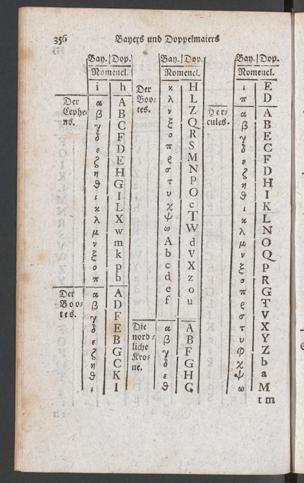 356 Bayers und Doppelmaiers
Bay. Dop.
Nomencl.
i h
Der Cephe-
ns.
α A
β B
γ C
δ F
ε D
ζ E
η H
θ G
ι I
κ L
λ X
μ w
ν m
ξ k
ο p
π b
Der Boo-
tes.
α A
β D
γ F
δ E
ε B
ζ G
η C
θ K
ι I
Bay. Dop.
Nomencl.
Der Boo-
tes.
κ H
λ L
ν Z
ξ Q
ο R
π S
ρ M
σ N
τ P
υ O
χ c
ψ T
ω W
A d
b V
c X
d Z
e o
f u
Die nord-
liche
Kro-
ne.
α A
β B
γ F
δ G
ε H
θ G
Bay. Dop.
Nomencl.
ι E
π D
Her-
cules.
α A
β B
γ E
δ C
ε F
ζ D
η H
θ I
ι K
κ L
λ N
μ O
ν Q
ξ P
ο R
π G
ρ T
σ V
τ X
υ Y
φ Z
χ b
ψ a
ω M
t m